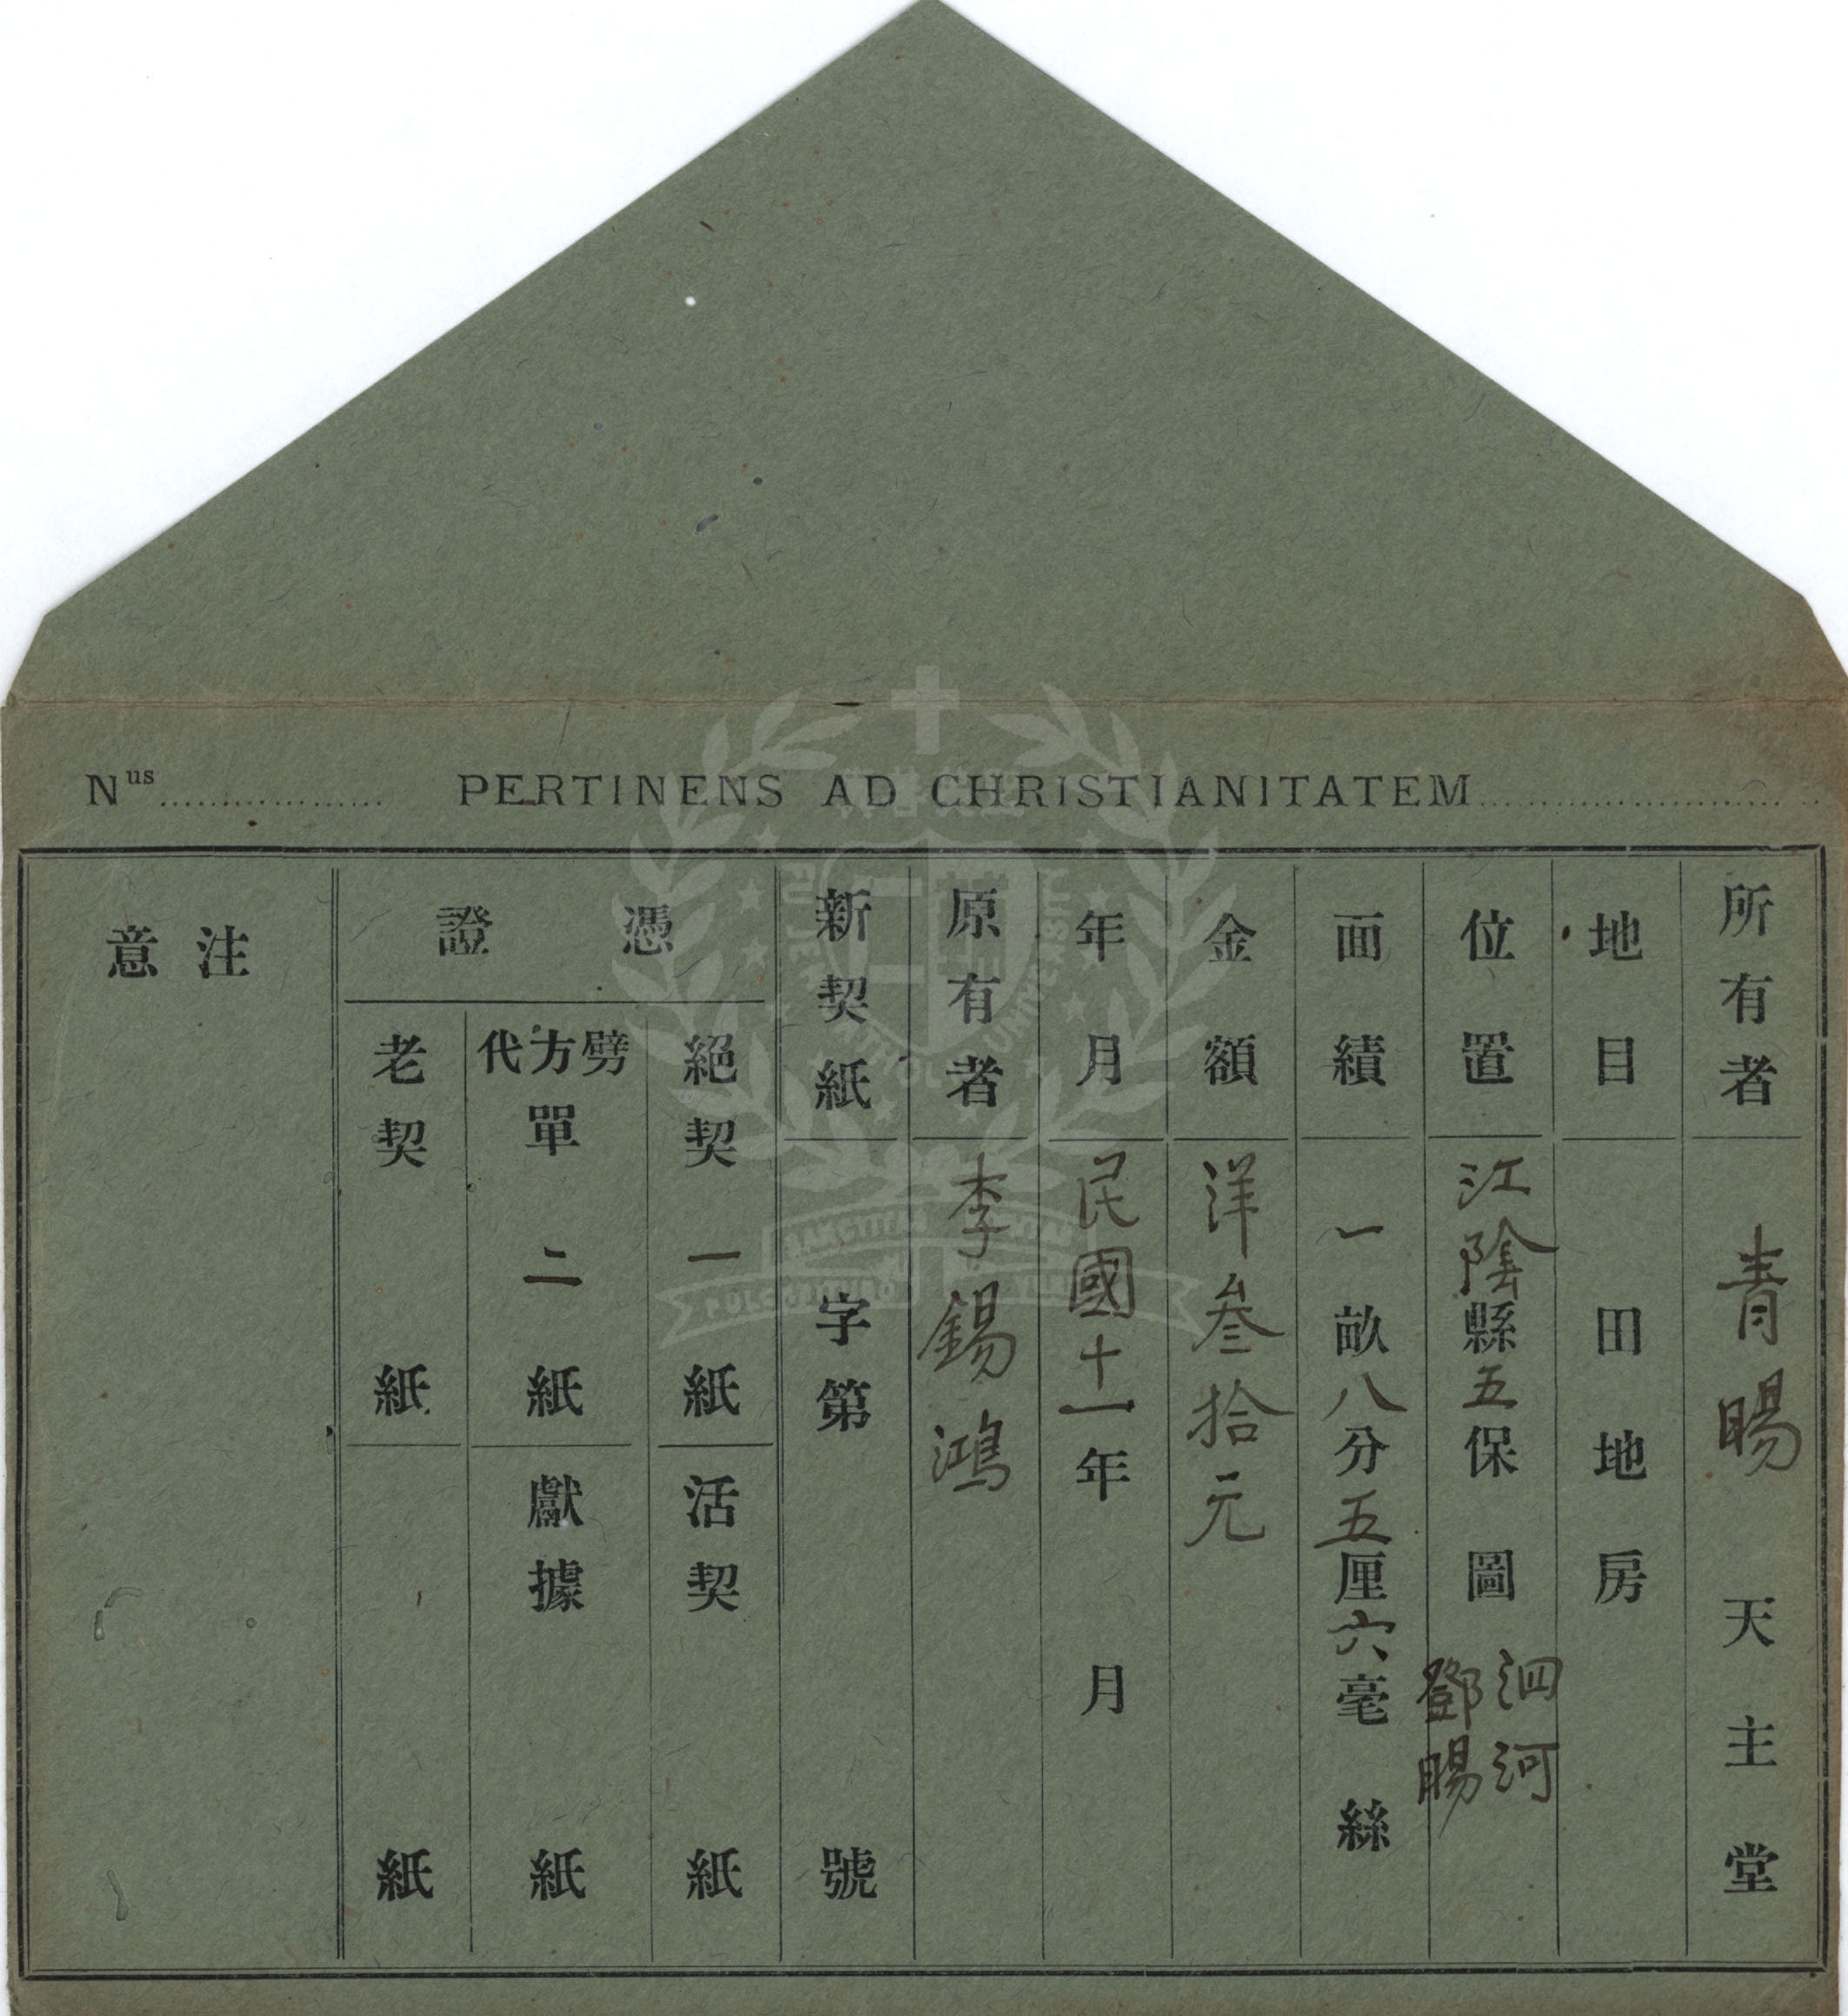 Nus PERTINENS AD CHRISTIANITATEM
所有者 青賜 天主堂
地目 田地房
位置 江陰縣五保圖 泗河
鄧賜
面績 一畝八分五厘六毫絲
金額 洋叁拾元
年月 民國十一年月
原有者 李錫鴻
新契紙 字第號
憑證
絕契 一紙
活契 紙
劈方代單 二紙
獻據 紙
老契 紙
紙
注意